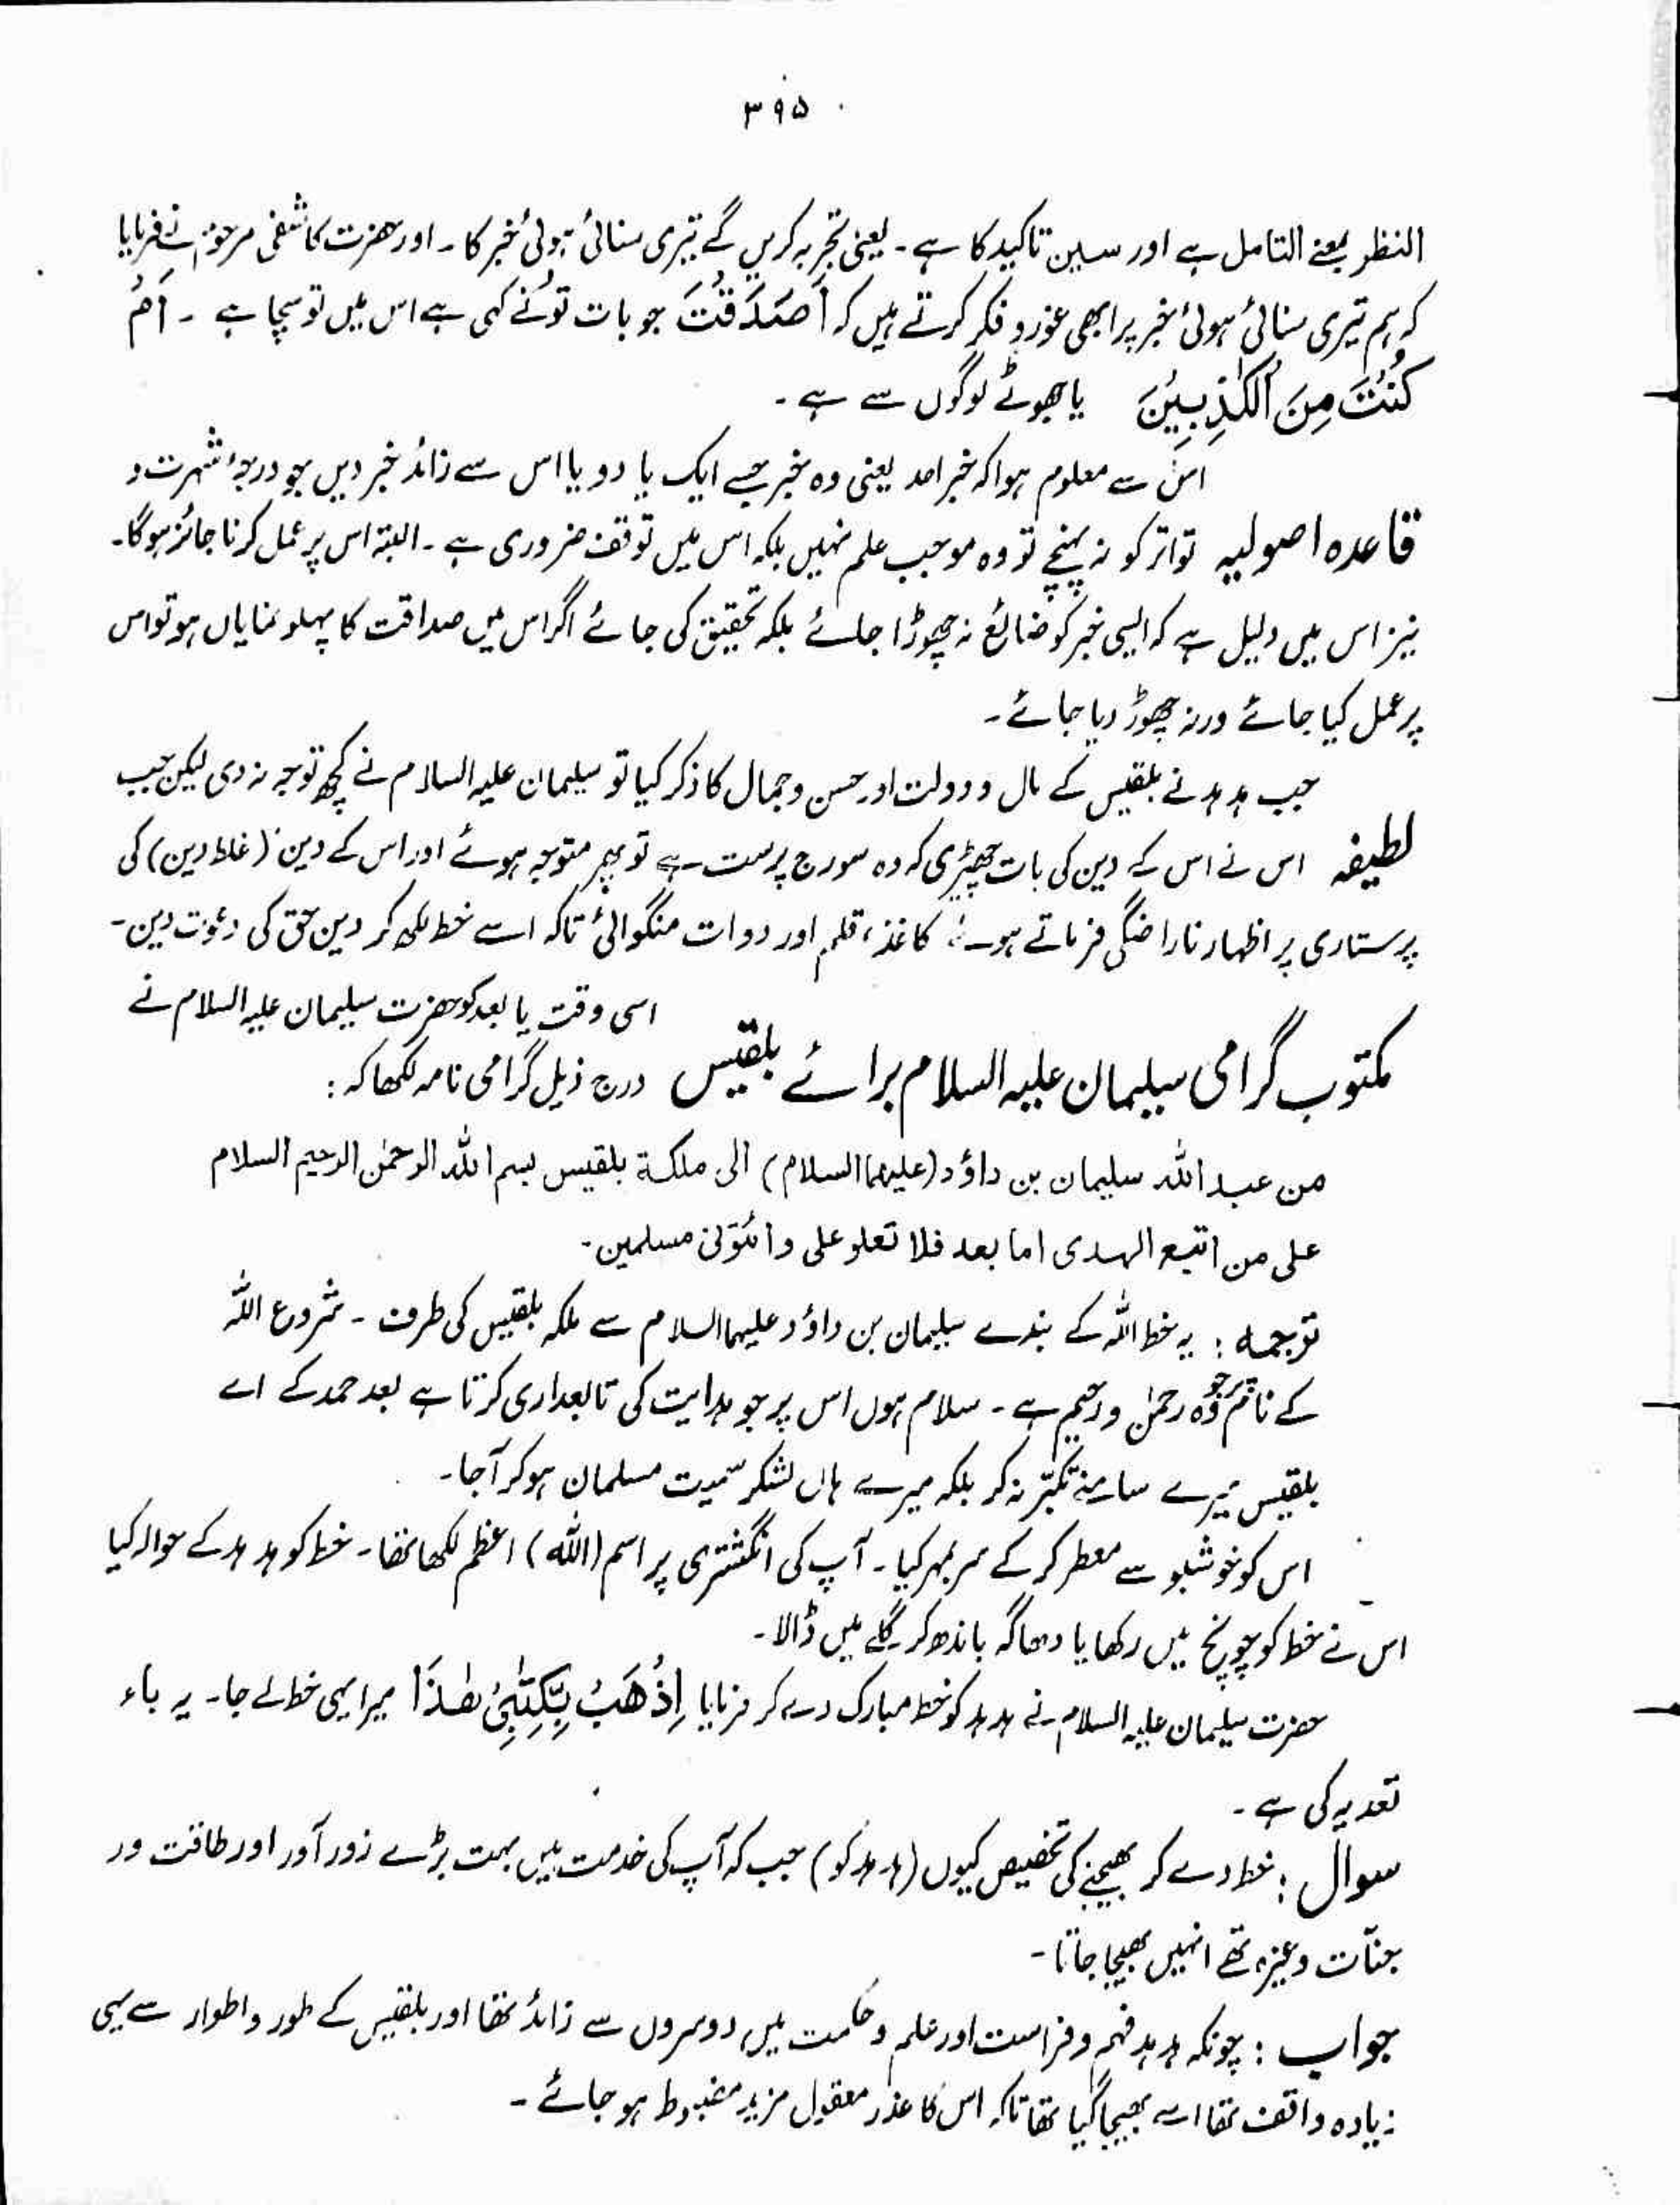 ۳۹۵
النظر بمعنے التامل ہے اور سین تاکید کا ہے ۔ یعنی تجربہ کریں گے تیری سنائی ہوئی خبر کا ۔ اور حضرت کاشفی مرحوم نے فرمایا
کہ ہم تیری سنائی ہوئی خبر پر ابھی غور و فکر کرتے ہیں کہ اَصَدَقْتَ جو بات تو نے کہی ہے اس میں تو سچا ہے ۔ اَمْ
كُنْتَ مِنَ الْكٰذِبِيْنَ یا جھوٹے لوگوں سے ہے ۔
اس سے معلوم ہوا کہ خبر احد یعنی وہ خبر جسے ایک یا دو یا اس سے زائد خبر دیں جو درجۂ شہرت و
قاعدہ اصولیہ تواتر کو نہ پہنچے تو وہ موجب علم نہیں بلکہ اس میں توقف ضروری ہے ۔ البتہ اس پر عمل کرنا جائز ہوگا۔
نیز اس میں دلیل ہے کہ ایسی خبر کو ضائع نہ چھوڑا جائے بلکہ تحقیق کی جائے اگر اس میں صداقت کا پہلو نمایاں ہو تو اس
پر عمل کیا جائے ورنہ چھوڑ دیا جائے ۔
جب ہدہد نے بلقیس کے مال و دولت اور حسن و جمال کا ذکر کیا تو سلیمان علیہ السلام نے کچھ توجہ نہ دی لیکن جب
لطیفہ اس نے اس کے دین کی بات چھیڑی کہ وہ سورج پرست ہے تو پھر متوجہ ہوئے اور اس کے دین (غلط دین) کی
پرستاری پر اظہار ناراضگی فرماتے ہوئے کاغذ، قلم اور دوات منگوائی تاکہ اسے خط لکھ کر دین حق کی دعوت دیں ۔
اسی وقت یا بعد کو حضرت سلیمان علیہ السلام نے
مکتوب گرامی سلیمان علیہ السلام برائے بلقیس درج ذیل گرامی نامہ لکھا کہ :
من عبد اللہ سلیمان بن داؤد (علیہما السلام) الی ملکۃ بلقیس بسم اللہ الرحمٰن الرحیم السلام
علی من اتبع الہدی اما بعد فلا تعلو علی وائتونی مسلمین ۔
ترجمہ : یہ خط اللہ کے بندے سلیمان بن داؤد علیہما السلام سے ملکہ بلقیس کی طرف ۔ شروع اللہ
کے نام پر جو وہ رحمٰن و رحیم ہے ۔ سلام ہوں اس پر جو ہدایت کی تابعداری کرتا ہے بعد حمد کے اے
بلقیس میرے سامنے تکبّر نہ کر بلکہ میرے ہاں لشکر سمیت مسلمان ہو کر آ جا ۔
اس کو خوشبو سے معطر کر کے سربمہر کیا ۔ آپ کی انگشتری پر اسم (اللہ) اعظم لکھا تھا ۔ خط کو ہدہد کے حوالہ کیا
اس نے خط کو چونچ میں رکھا یا دھاگہ باندھ کر گلے میں ڈالا ۔
حضرت سلیمان علیہ السلام نے ہدہد کو خط مبارک دے کر فرمایا اِذْهَبْ بِّكِتٰبِيْ هٰذَا میرا یہی خط لے جا ۔ یہ باء
تعدیہ کی ہے ۔
سوال : خط دے کر بھیجنے کی تخصیص کیوں (ہدہد کو) جب کہ آپ کی خدمت میں بہت بڑے زور آور اور طاقت ور
جنّات وغیرہ تھے انہیں بھیجا جاتا ۔
جواب : چونکہ ہدہد فہم و فراست اور علم و حکمت میں دوسروں سے زائد تھا اور بلقیس کے طور و اطوار سے یہی
زیادہ واقف تھا اسے بھیجا گیا تھا تاکہ اس کا عذر معقول مزید مضبوط ہو جائے ۔